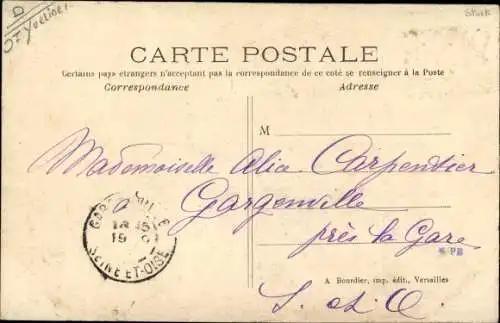 D
Yvelines
Stock
CARTE POSTALE
Certains pays étrangers n'acceptant pas la correspondance de ce coté se renseigner à la Poste
Correspondance
Adresse
M
Mademoiselle Alice Carpentier
à Gargenville
près la Gare
PB
SEINE-ET-OISE
A Bourdier, imp. édit., Versailles
S. et O.